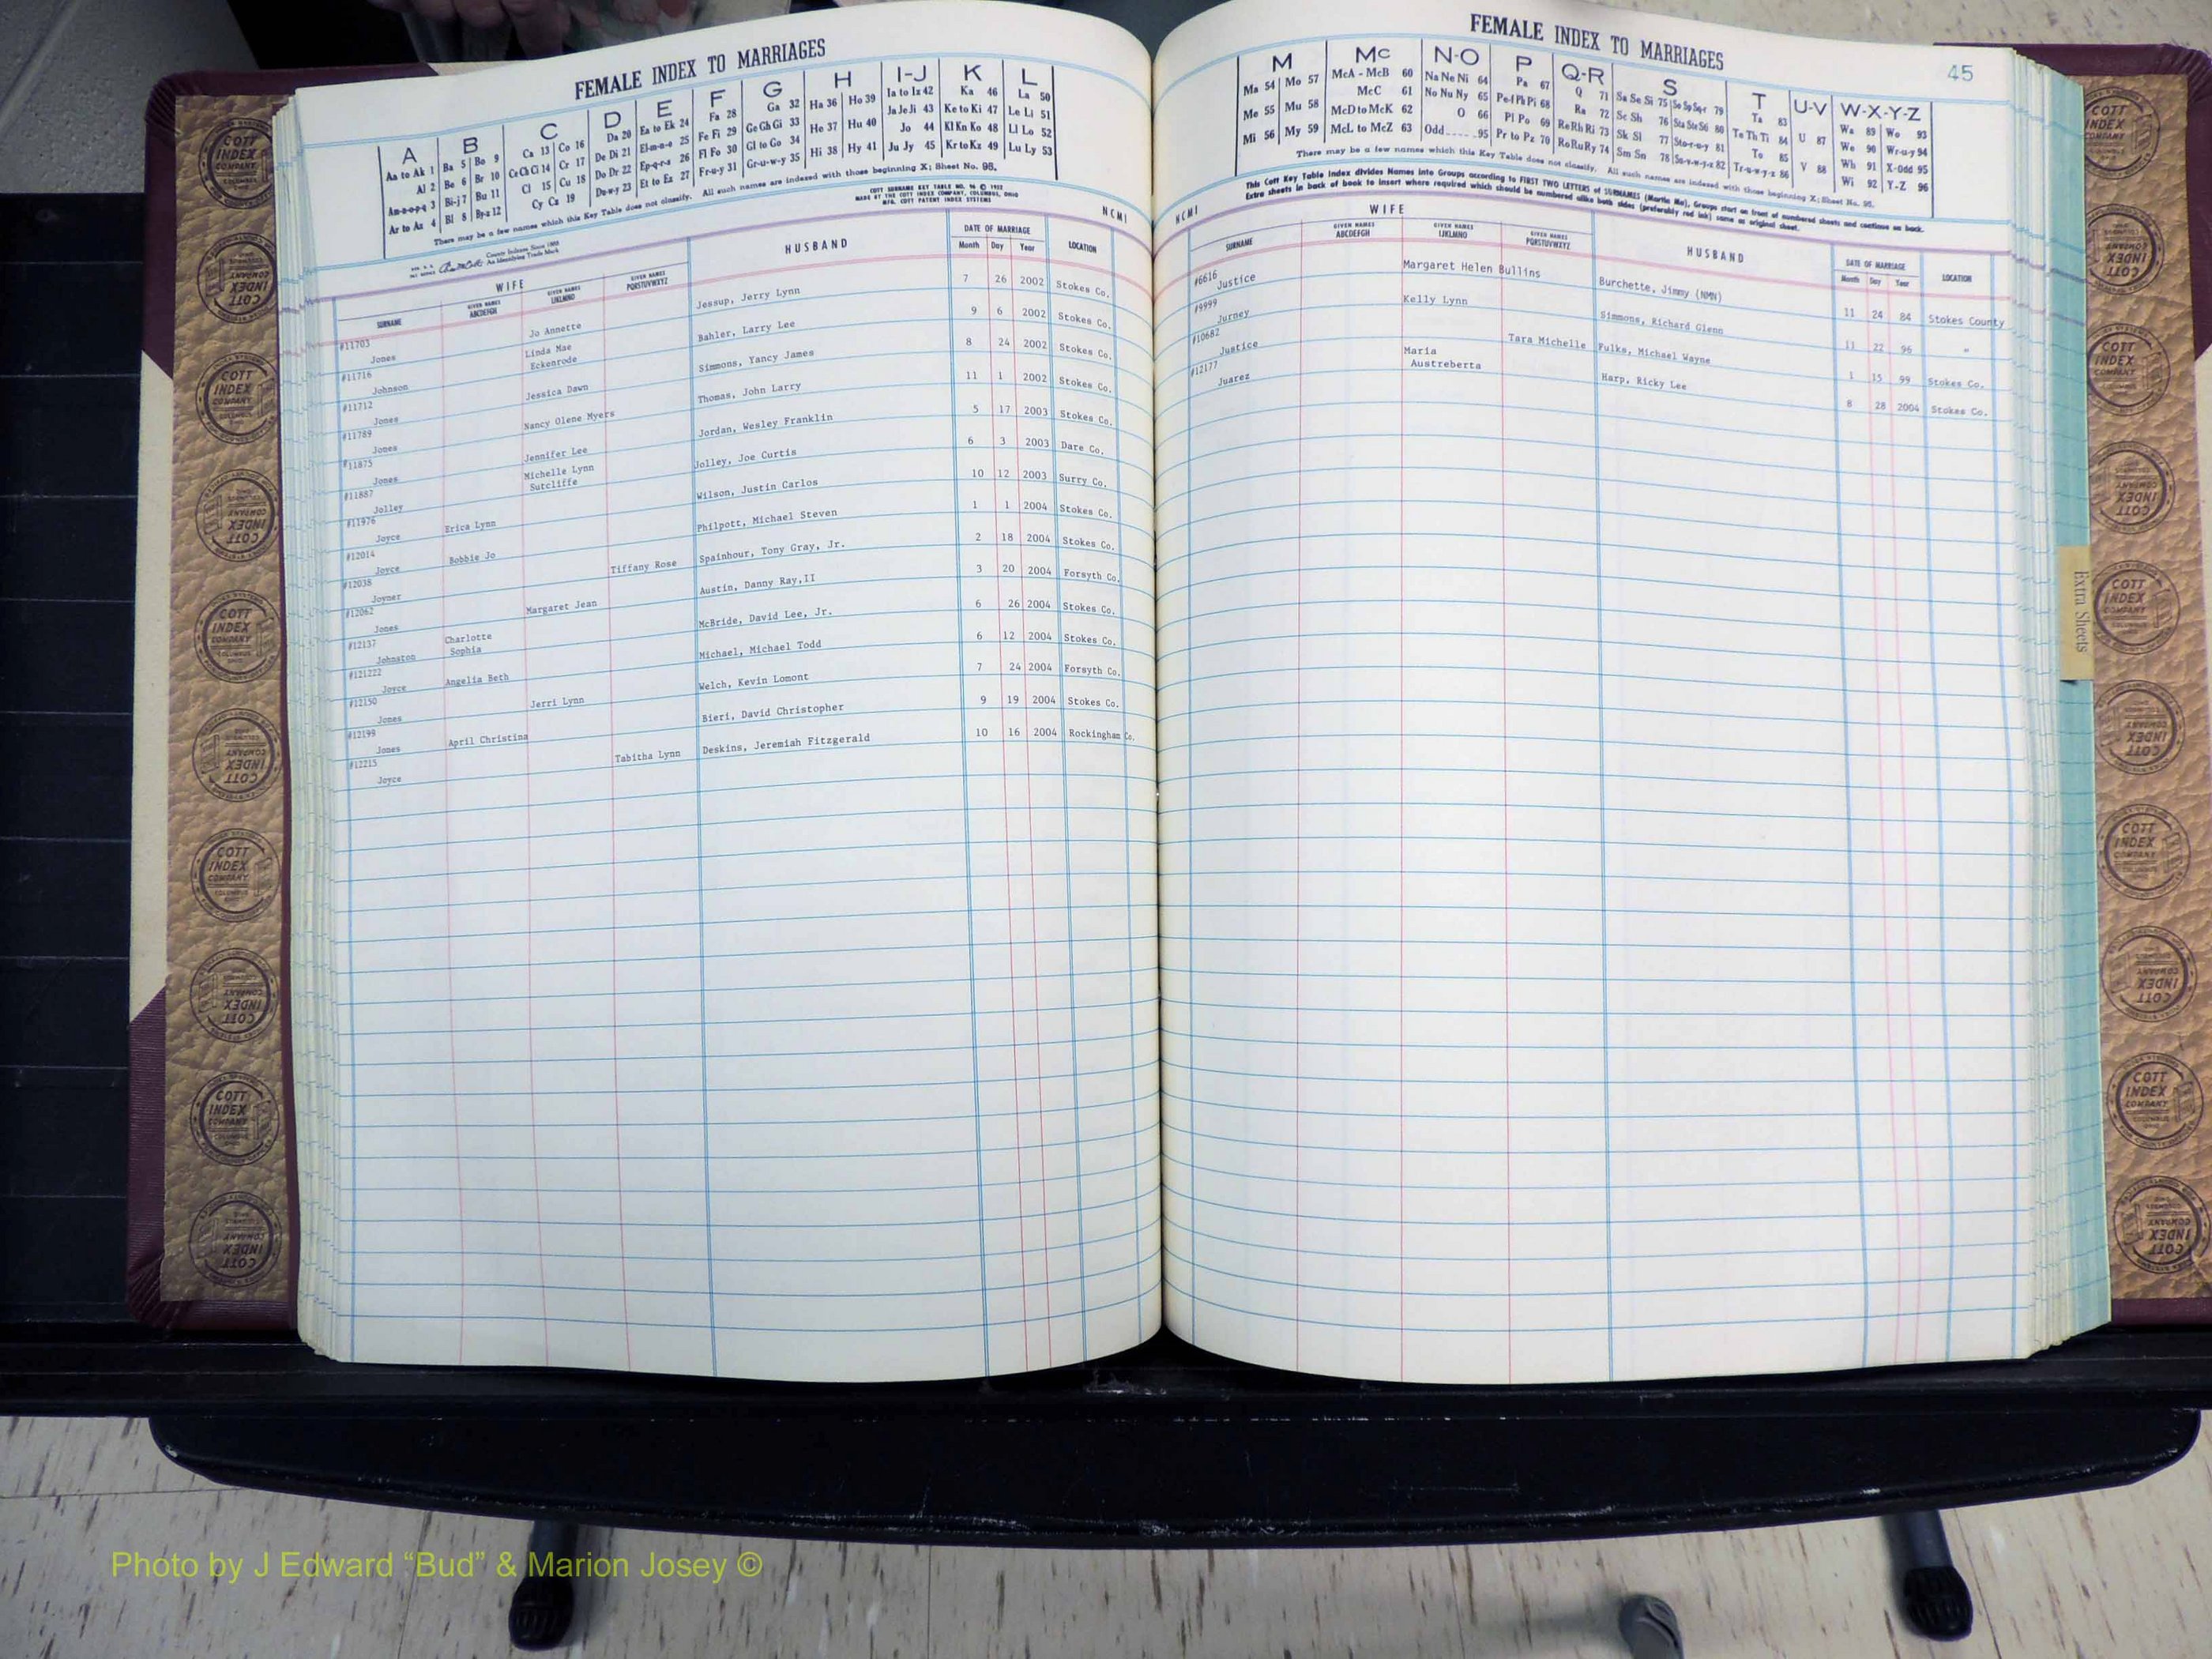 FEMALE INDEX TO MARRIAGES
A B C D E F G H I-J K L
Aa to Ak 1 Ba 5 Be 9 Ca 13 Co 16 Da 20 Ea to Ek 24 Fa 28 Ga 32 Ha 36 Ho 39 Ia to Iz 42 Ka 46 La 50
Al 2 Be 6 Br 10 Ce Ch Ci 14 Cr 17 De Di 21 El-m-n-o 25 Fe Fi 29 Ge Gh Gi 33 He 37 Hu 40 Ja Je Ji 43 Ke to Ki 47 Le Li 51
Am-n-o-p-q 3 Bi-j 7 Bu 11 Cl 15 Cu 18 Do Dr 22 Ep-q-r-s 26 Fl Fo 30 Gl to Go 34 Hi 38 Hy 41 Jo 44 Kl Kn Ko 48 Ll Lo 52
Ar to Az 4 Bl 8 By-z 12 Cy Cz 19 Du-w-y 23 Et to Ez 27 Fr-u-y 31 Gr-u-w-y 35 Ju Jy 45 Kr to Kz 49 Lu Ly 53
There may be a few names which this Key Table does not classify. All such names are indexed with those beginning X; Sheet No. 95.
COTT SURNAME KEY TABLE NO. 96 © 1932
MADE BY THE COTT INDEX COMPANY, COLUMBUS, OHIO
MFG. COTT PATENT INDEX SYSTEMS
County Indexes Since 1888
An Identifying Trade Mark
NCMI
WIFE HUSBAND DATE OF MARRIAGE LOCATION
SURNAME GIVEN NAMES ABCDEFGH GIVEN NAMES IJKLMNO GIVEN NAMES PQRSTUVWXYZ Month Day Year
#11703 Jones Jo Annette Jessup, Jerry Lynn 7 26 2002 Stokes Co.
#11716 Johnson Linda Mae Eckenrode Bahler, Larry Lee 9 6 2002 Stokes Co.
#11712 Jones Jessica Dawn Simmons, Yancy James 8 24 2002 Stokes Co.
#11789 Jones Nancy Olene Myers Thomas, John Larry 11 1 2002 Stokes Co.
#11875 Jones Jennifer Lee Jordan, Wesley Franklin 5 17 2003 Stokes Co.
#11887 Jolley Michelle Lynn Sutcliffe Jolley, Joe Curtis 6 3 2003 Dare Co.
#11976 Joyce Erica Lynn Wilson, Justin Carlos 10 12 2003 Surry Co.
#12014 Joyce Bobbie Jo Philpott, Michael Steven 1 1 2004 Stokes Co.
#12038 Joyner Tiffany Rose Spainhour, Tony Gray, Jr. 2 18 2004 Stokes Co.
#12062 Jones Margaret Jean Austin, Danny Ray,II 3 20 2004 Forsyth Co.
#12137 Johnston Charlotte Sophia McBride, David Lee, Jr. 6 26 2004 Stokes Co.
#121222 Joyce Angelia Beth Michael, Michael Todd 6 12 2004 Stokes Co.
#12150 Jones Jerri Lynn Welch, Kevin Lomont 7 24 2004 Forsyth Co.
#12199 Jones April Christina Bieri, David Christopher 9 19 2004 Stokes Co.
#12215 Joyce Tabitha Lynn Deskins, Jeremiah Fitzgerald 10 16 2004 Rockingham Co.
FEMALE INDEX TO MARRIAGES
45
M Mc N-O P Q-R S T U-V W-X-Y-Z
Ma 54 Mo 57 McA - McB 60 Na Ne Ni 64 Pa 67 Q 71 Sa Se Si 75 So Sp Sq-r 79 Ta 83 U 87 Wa 89 Wo 93
Me 55 Mu 58 McC 61 No Nu Ny 65 Pe-f Ph Pi 68 Ra 72 Sc Sh 76 Sta Ste Sti 80 Te Th Ti 84 V 88 We 90 Wr-u-y 94
Mi 56 My 59 McD to McK 62 O 66 Pl Po 69 Re Rh Ri 73 Sk Sl 77 Sto-r-u-y 81 To 85 Wh 91 X-Odd 95
McL to McZ 63 Odd 95 Pr to Pz 70 Ro Ru Ry 74 Sm Sn 78 Su-v-w-y-z 82 Tr-u-w-y-z 86 Wi 92 Y-Z 96
There may be a few names which this Key Table does not classify. All such names are indexed with those beginning X; Sheet No. 95.
This Cott Key Table Index divides Names into Groups according to FIRST TWO LETTERS of SURNAMES (Martin Ma), Groups start on front of numbered sheets and continue on back.
Extra sheets in back of book to insert where required which should be numbered alike both sides (preferably red ink) same as original sheet.
NCMI
WIFE HUSBAND DATE OF MARRIAGE LOCATION
SURNAME GIVEN NAMES ABCDEFGH GIVEN NAMES IJKLMNO GIVEN NAMES PQRSTUVWXYZ Month Day Year
#6616 Justice Margaret Helen Bullins Burchette, Jimmy (NMN) 11 24 84 Stokes County
#9999 Jurney Kelly Lynn Simmons, Richard Glenn 11 22 96 "
#10682 Justice Tara Michelle Fulks, Michael Wayne 1 15 99 Stokes Co.
#12177 Juarez Maria Austreberta Harp, Ricky Lee 8 28 2004 Stokes Co.
Extra Sheets
COTT INDEX COMPANY
Photo by J Edward “Bud” & Marion Josey ©